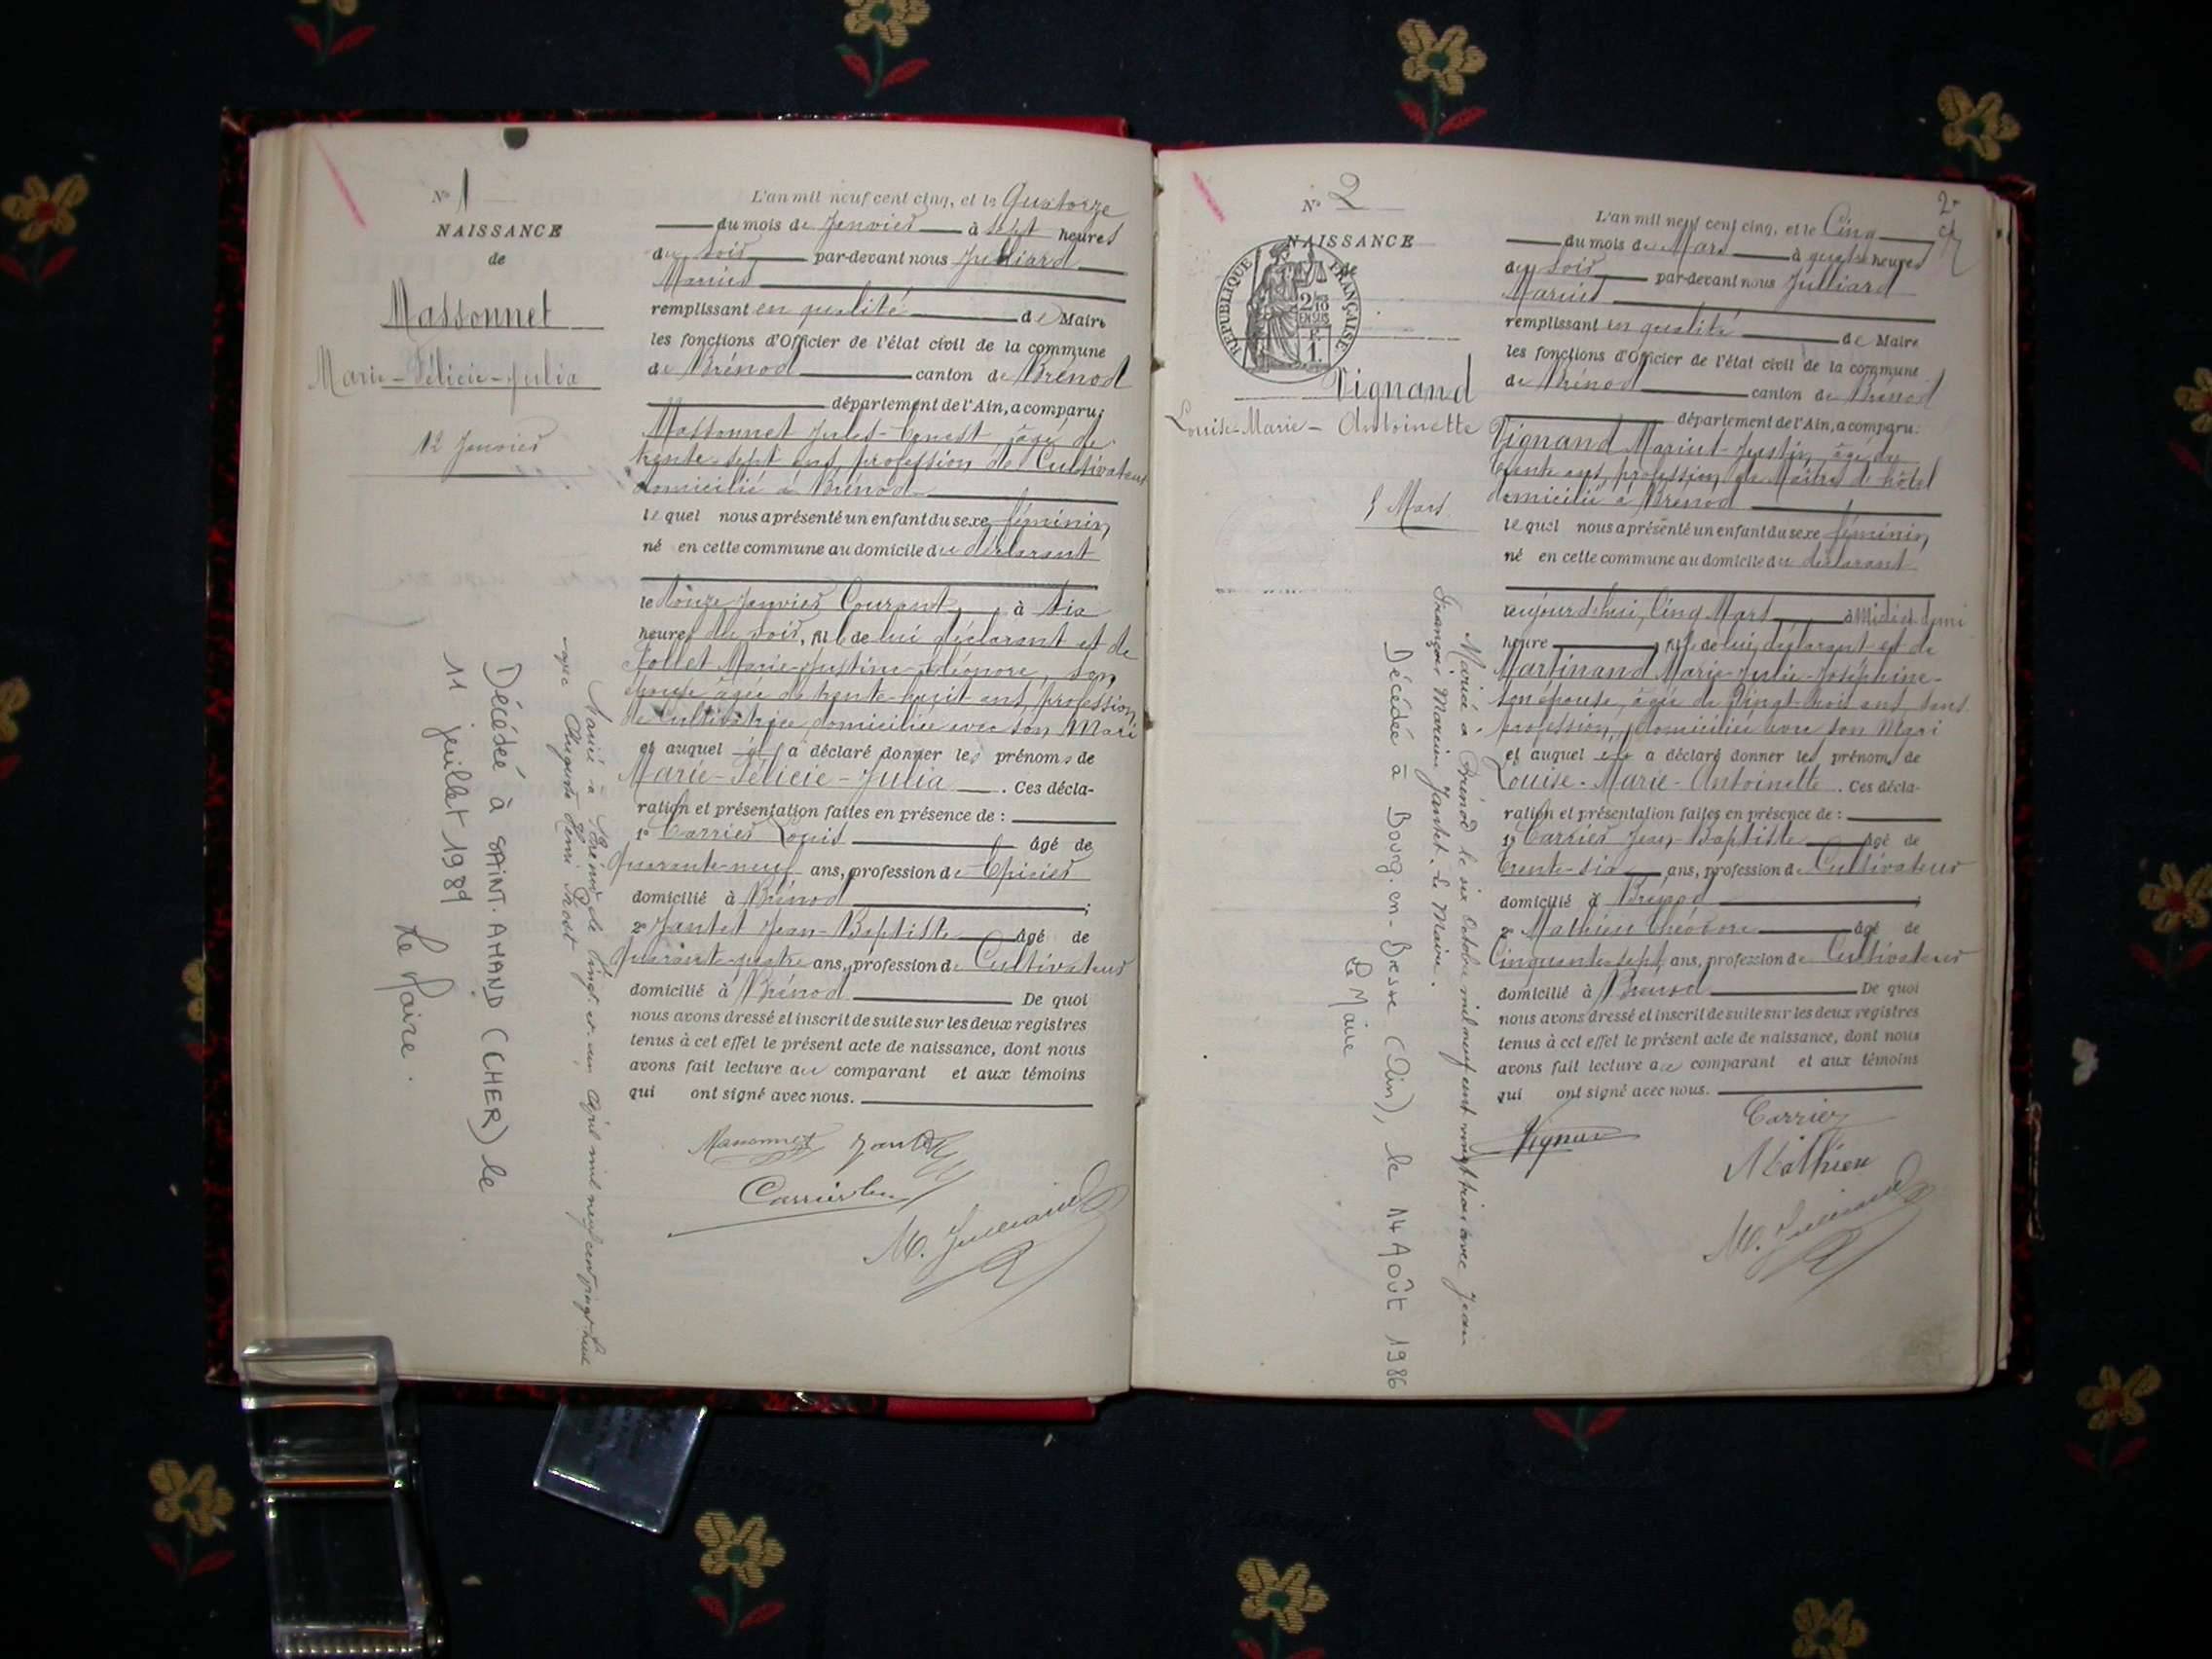 N° 1
NAISSANCE
de
Massonnet
Marie-Félicie-Julia
12 Janvier
L'an mil neuf cent cinq, et le Quatorze
du mois de Janvier à sept heures
du soir par-devant nous Julliard
Marius
remplissant en qualité de Maire
les fonctions d'Officier de l'état civil de la commune
de Brénod canton de Brénod
département de l'Ain, a comparu:
Massonnet Jules-Ernest, âgé de
trente-sept ans, profession de Cultivateur
domicilié à Brénod
lequel nous a présenté un enfant du sexe féminin,
né en cette commune au domicile du déclarant
le douze Janvier Courant, à six
heures du soir, fille de lui déclarant et de
Jollet Marie-Justine-Eléonore, son
épouse âgée de trente-huit ans, profession
de cultivatrice, domiciliée avec son Mari
et auquel il a déclaré donner les prénoms de
Marie-Félicie-Julia. Ces décla-
ration et présentation faites en présence de :
1° Carrier Louis âgé de
Quarante-neuf ans, profession de Epicier
domicilié à Brénod ;
2° Jantet Jean-Baptiste âgé de
Quarante-quatre ans, profession de Cultivateur
domicilié à Brénod De quoi
nous avons dressé et inscrit de suite sur les deux registres
tenus à cet effet le présent acte de naissance, dont nous
avons fait lecture au comparant et aux témoins
qui ont signé avec nous.
Massonnet Jantet
Carrier
M. Julliard
Mariée à Brénod le vingt et un Avril mil neuf cent vingt huit
avec Auguste Henri
Décédée à SAINT-AMAND (CHER) le
11 juillet 1989
Le Maire.
N° 2
NAISSANCE
de
REPUBLIQUE FRANÇAISE
Vignand
Louise-Marie-Antoinette
5 Mars
2e
L'an mil neuf cent cinq, et le Cinq
du mois de Mars à quatre heures
du soir par-devant nous Julliard
Marius
remplissant en qualité de Maire
les fonctions d'Officier de l'état civil de la commune
de Brénod canton de Brénod
département de l'Ain, a comparu:
Vignand Marius-Justin, âgé de
trente ans, profession de Maître d'hôtel
domicilié à Brénod
lequel nous a présenté un enfant du sexe féminin,
né en cette commune au domicile du déclarant
aujourd'hui, Cinq Mars à Midi et demi
heure, fille de lui déclarant et de
Martinand Marie-Julie-Joséphine-
son épouse, âgée de Vingt-trois ans, sans
profession, domiciliée avec son Mari
et auquel il a déclaré donner les prénoms de
Louise-Marie-Antoinette. Ces décla-
ration et présentation faites en présence de :
1° Carrier Jean-Baptiste âgé de
trente-six ans, profession de Cultivateur
domicilié à Brénod ;
2° Mathieu Théodore âgé de
Cinquante-sept ans, profession de Cultivateur
domicilié à Brénod De quoi
nous avons dressé et inscrit de suite sur les deux registres
tenus à cet effet le présent acte de naissance, dont nous
avons fait lecture au comparant et aux témoins
qui ont signé avec nous.
Vignand Carrier
Mathieu
M. Julliard
Mariée à Brénod le six Octobre mil neuf cent vingt trois avec Jean
François Marcien Jantet. Le Maire.
Décédée à Bourg-en-Bresse (Ain), le 14 Août 1986
Le Maire